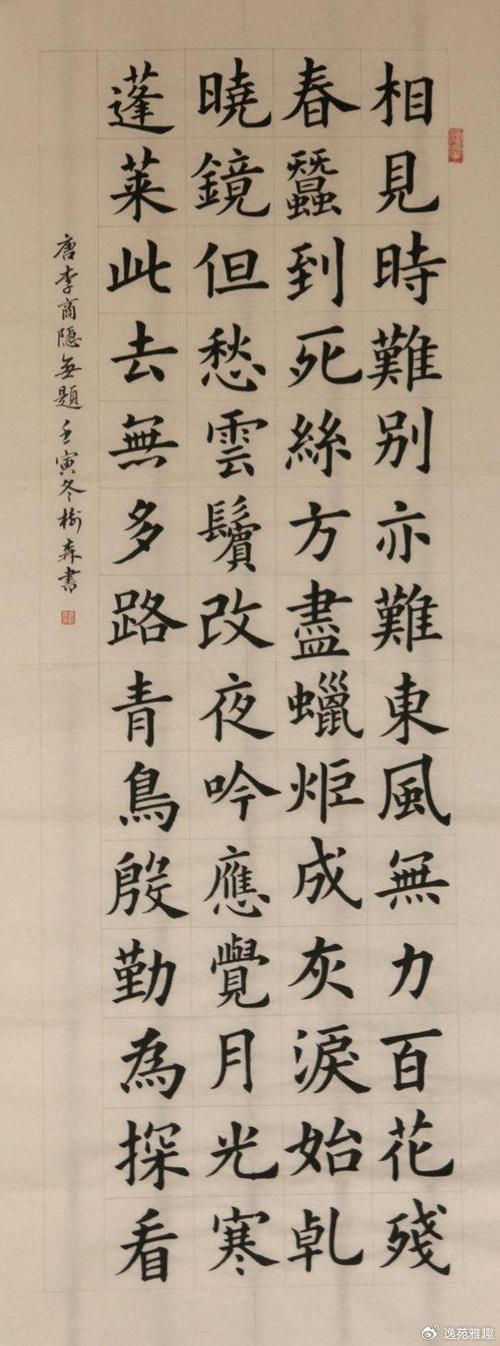 相見時難別亦難東風無力百花殘
春蠶到死絲方盡蠟炬成灰淚始乹
曉鏡但愁雲鬢改夜吟應覺月光寒
蓬萊此去無多路青鳥殷勤為探看
唐李商隱無題壬寅冬樹森書
逸苑雅趣